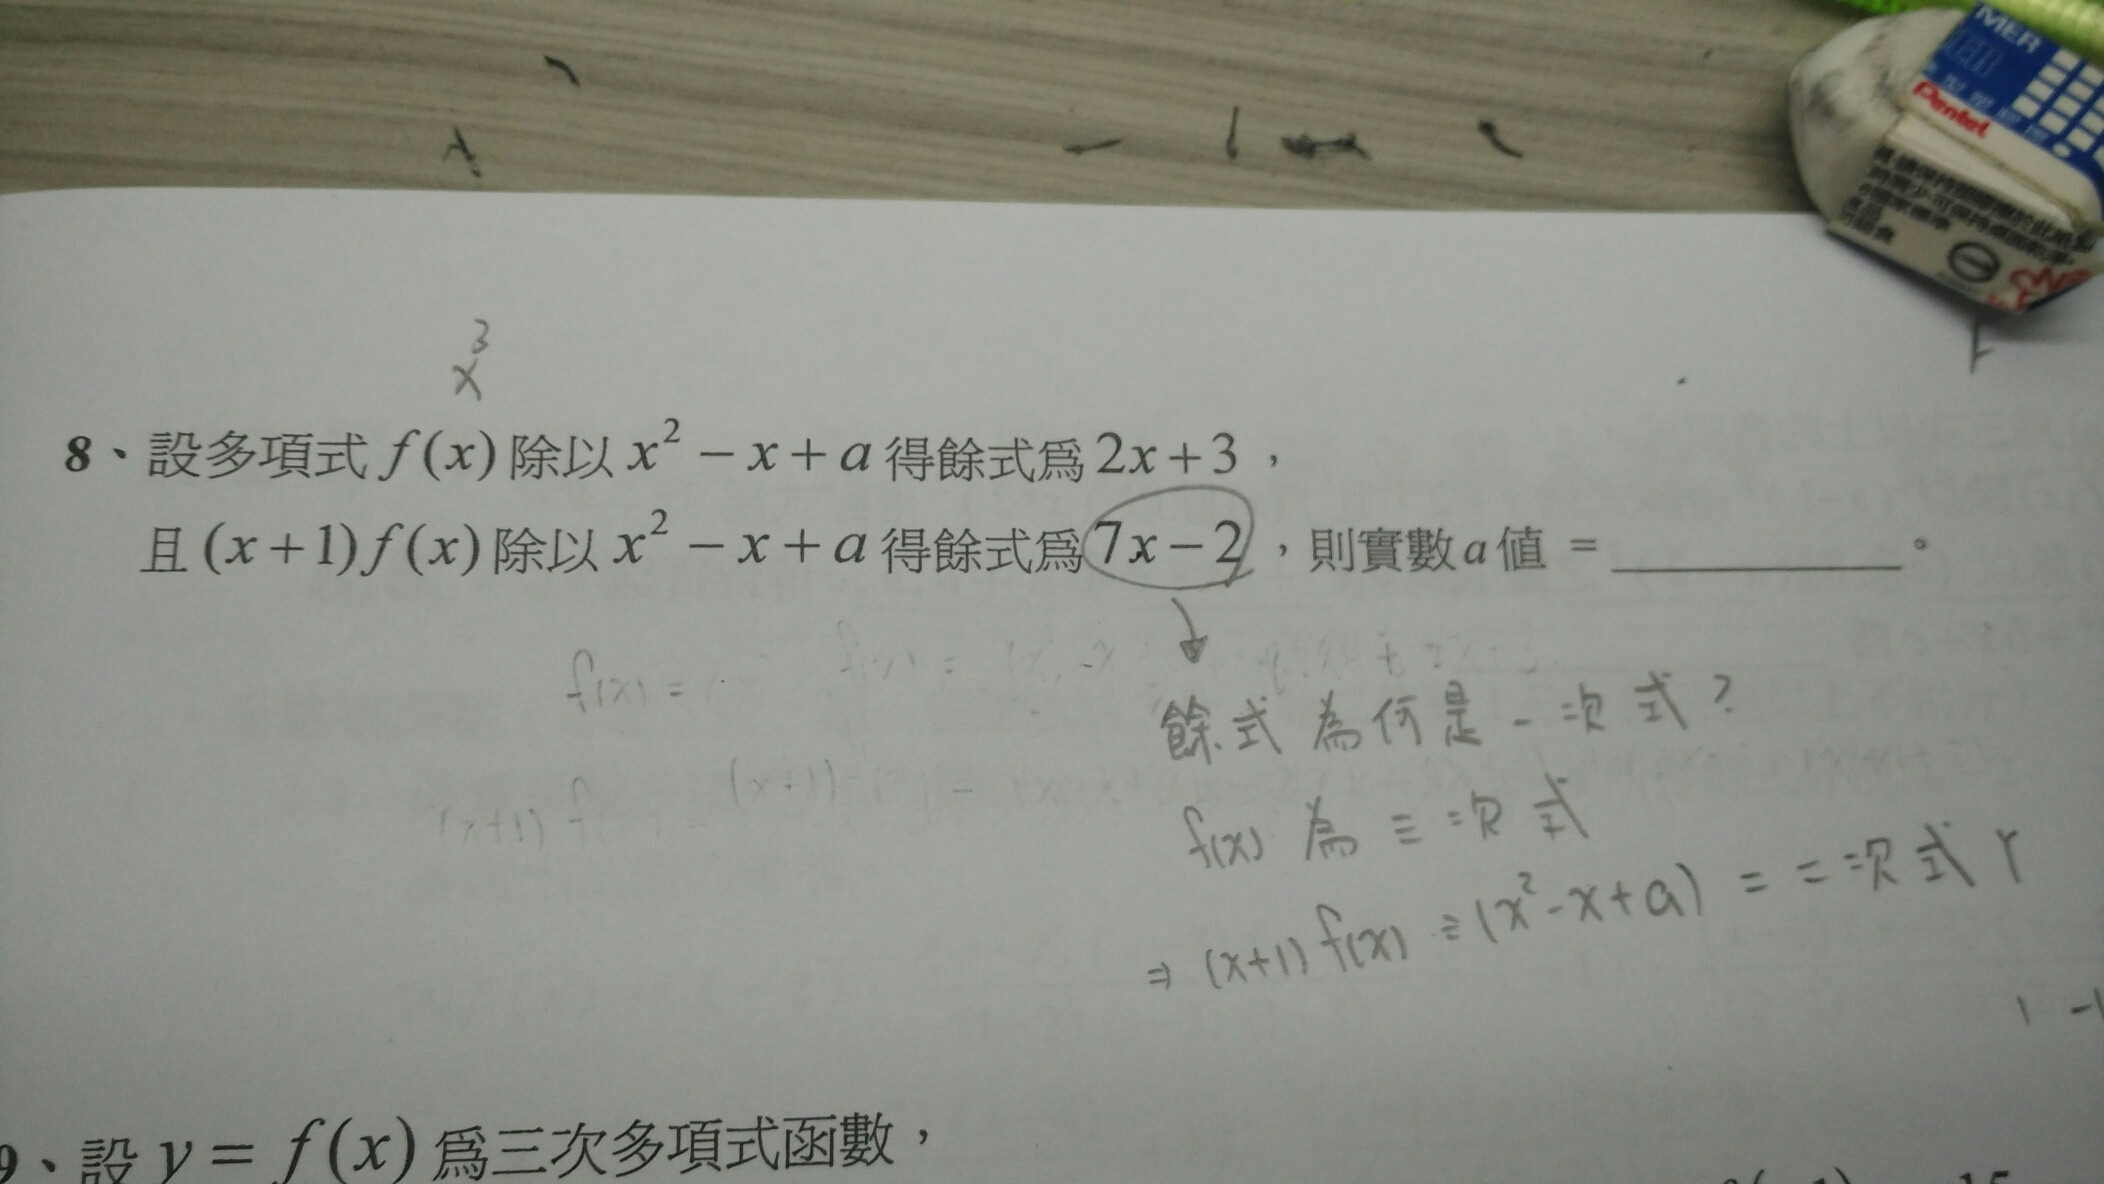 MER
Pentel
x³
8、設多項式 f(x) 除以 x² − x + a 得餘式爲 2x + 3，
且 (x + 1) f(x) 除以 x² − x + a 得餘式爲 7x − 2，則實數 a 值 = ________。
f(x) =
餘式為何是一次式？
(x+1) f
f(x) 為三次式
⇒ (x+1) f(x) ÷ (x²-x+a) = 二次式 r
1 -1
9、設 y = f(x) 爲三次多項式函數，